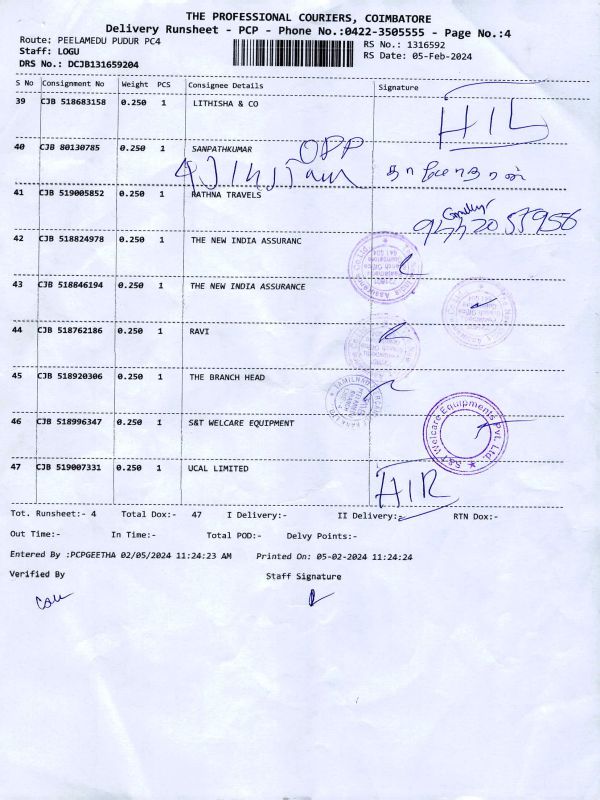 THE PROFESSIONAL COURIERS, COIMBATORE
Delivery Runsheet - PCP - Phone No.:0422-3505555 - Page No.:4
Route: PEELAMEDU PUDUR PC4
RS No.: 1316592
Staff: LOGU
RS Date: 05-Feb-2024
DRS No.: DCJB131659204
S No Consignment No Weight PCS Consignee Details Signature
39 CJB 518683158 0.250 1 LITHISHA & CO
HIL
40 CJB 80130785 0.250 1 SANPATHKUMAR
OPP
41 CJB 519005852 0.250 1 RATHNA TRAVELS
42 CJB 518824978 0.250 1 THE NEW INDIA ASSURANC
43 CJB 518846194 0.250 1 THE NEW INDIA ASSURANCE
44 CJB 518762186 0.250 1 RAVI
45 CJB 518920306 0.250 1 THE BRANCH HEAD
46 CJB 518996347 0.250 1 S&T WELCARE EQUIPMENT
S&T Welcare Equipments Pvt. Ltd.
47 CJB 519007331 0.250 1 UCAL LIMITED
HIR
Tot. Runsheet:- 4 Total Dox:- 47 I Delivery:- II Delivery:- RTN Dox:-
Out Time:- In Time:- Total POD:- Delvy Points:-
Entered By :PCPGEETHA 02/05/2024 11:24:23 AM Printed On: 05-02-2024 11:24:24
Verified By Staff Signature